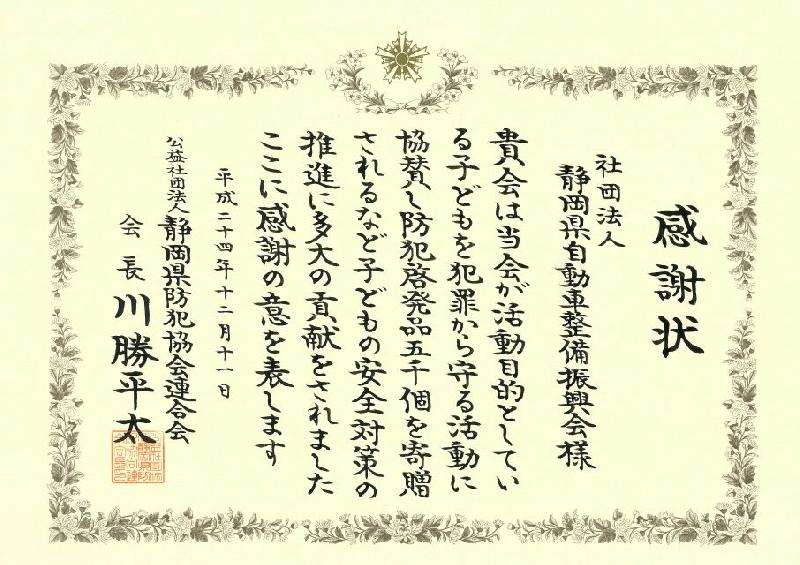 感謝状
社団法人
静岡県自動車整備振興会様
貴会は当会が活動目的としてい
る子どもを犯罪から守る活動に
協賛し防犯啓発品五千個を寄贈
されるなど子どもの安全対策の
推進に多大の貢献をされました
ここに感謝の意を表します
平成二十四年十二月十一日
公益社団法人静岡県防犯協会連合会
会長川勝平太